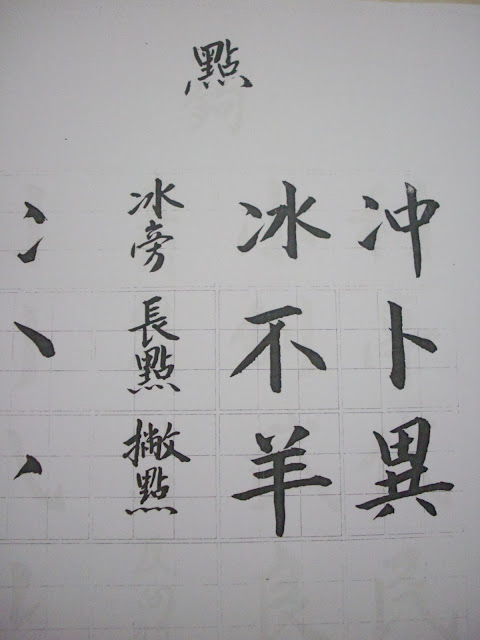 點
冫 冰旁 冰 冲
㇔ 長點 不 卜
㇒ 撇點 羊 異